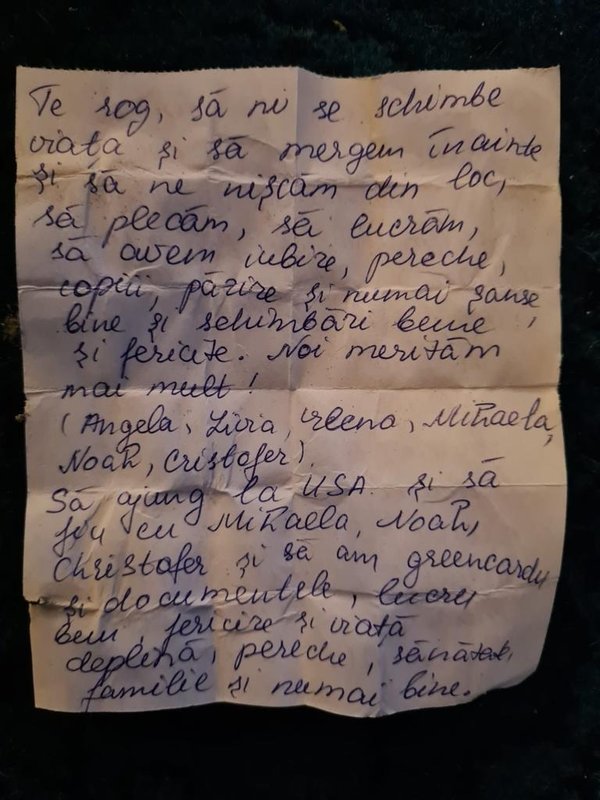 Te rog, să ni se schimbe
viața și să mergem înainte
și să ne mișcăm din loc,
să plecăm, să lucrăm,
să avem iubire, pereche,
copiii, părire și numai șanse,
bine și schimbări bune
și fericite. Noi merităm
mai mult!
(Angela, Livia, Irena, Mihaela,
Noah, Cristofer)
Să ajung la USA și să
fiu cu Mihaela, Noah,
Christofer și să am greencardu
și documentele, lucru
bun, fericire și viață
deplină, pereche, sănătate,
familie și numai bine.